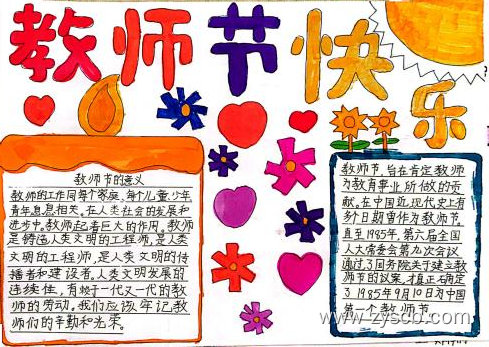 教师节快乐
教师节的意义
教师的工作同每个家庭、每个儿童、少年
青年息息相关。在人类社会的发展和
进步中。教师起着巨大的作用。教师
是铸造人类文明的工程师,是人类
文明的工程师,是人类文明的传
播者和建设者。人类文明发展的
连续性,有赖于一代又一代的教
师的劳动。我们应该牢记教
师们的辛勤和光荣。
教师节,旨在肯定教师
为教育事业所做的贡
献。在中国近现代史上有
多个日期曾作为教师节。
直至1985年,第六届全国
人大常委会第九次会议
通过了国务院关于建立教
师节的议案,才真正确定
了1985年9月10日为中国
第一个教师节。
www.zyscb.com